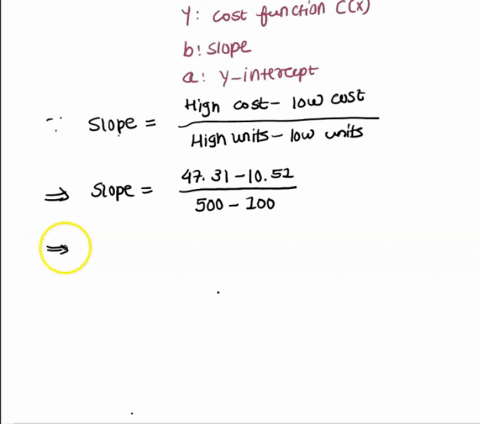 Y: cost function C(x)
b: slope
a: Y-intercept
∵ Slope = High cost - low cost / High units - low units
⇒ Slope = 47.31 - 10.52 / 500 - 100
⇒